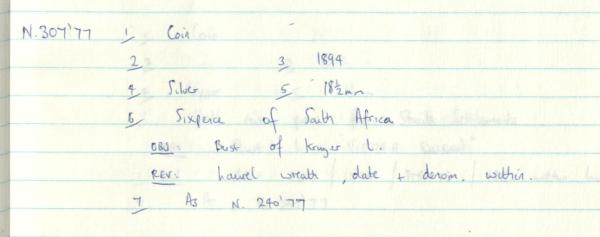 N.307'77 1/ Coin
2/ 3/ 1894
4/ Silver 5/ 18½mm
6/ Sixpence of South Africa
OBV: Bust of Kruger l.
REV: Laurel wreath, date + denom. within.
7/ As N. 240'77